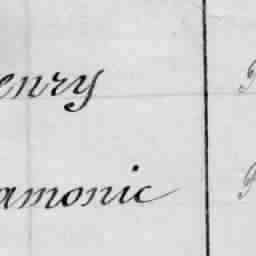 enry
amonic